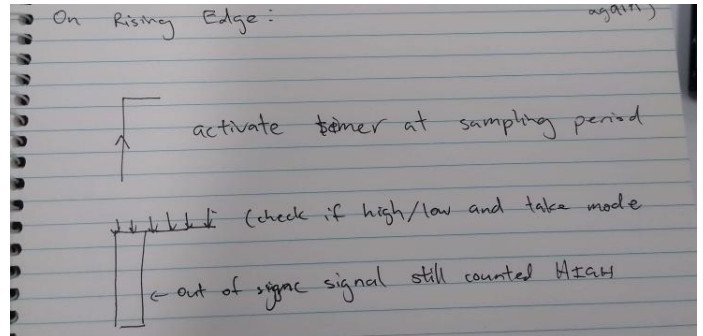 again)
On Rising Edge:
activate timer at sampling period
(check if high/low and take mode
out of signc signal still counted HIGH